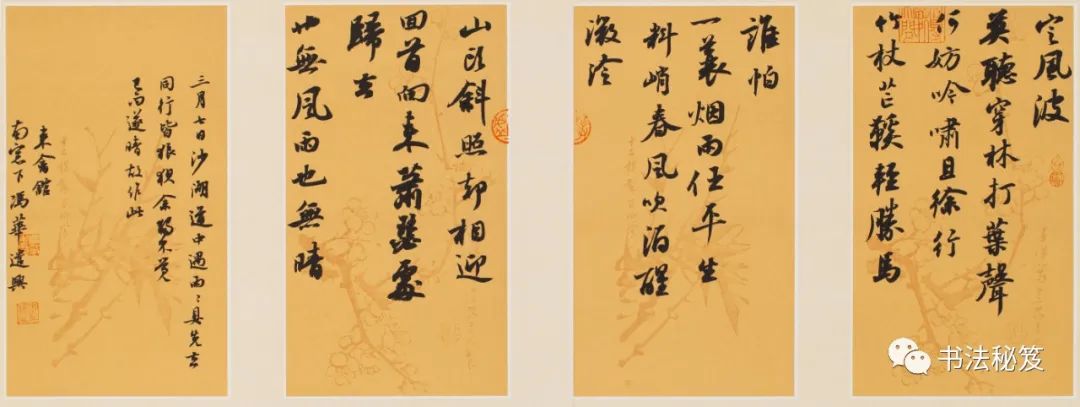 定風波
莫聽穿林打葉聲
何妨吟嘯且徐行
竹杖芒鞵輕勝馬
誰怕
一蓑烟雨任平生
料峭春風吹酒醒
微冷
山頭斜照却相迎
回首向来蕭瑟處
歸去
也無風雨也無晴
三月七日沙湖道中遇雨〻具先去
同行皆狼狽余獨不覺
已而遂晴故作此
来禽館
南窓下馮華
书法秘笈